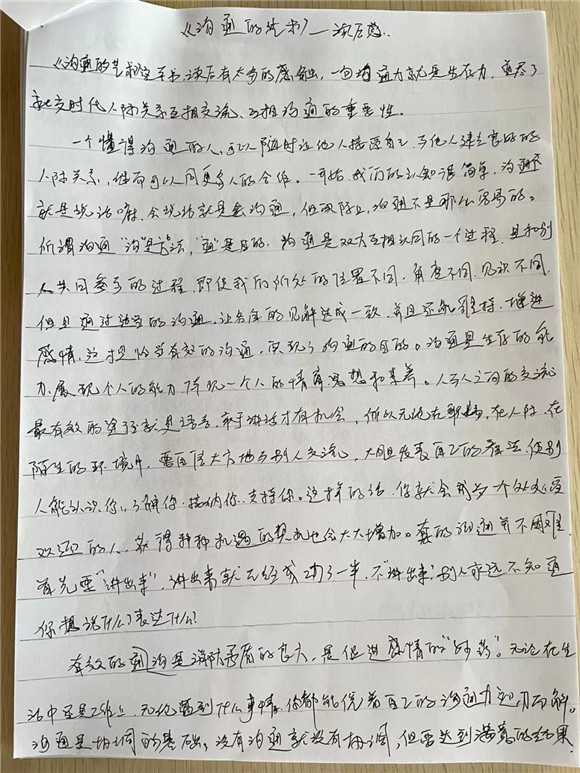 《沟通的艺术》—读后感.
《沟通的艺术》读后有太多的感触,一句沟通力就是生存力,道尽了
社交时代人际关系互相交流、互相沟通的重要性。
一个懂得沟通的人,可以随时让他人接纳自己,与他人建立良好的
人际关系,继而可以同更多人的合作。一开始,我们的认知很简单,沟通
就是说话嘛,会说话就是会沟通,但实际上,沟通不是那么容易的。
所谓沟通"沟"是方法,"通"是目的。沟通是双方互相认同的一个过程,是和别
人共同参与的过程,即使我们所处的位置不同、角度不同、见识不同,
但是通过适当的沟通,让各自的见解达成一致,并且还能增进
感情,这才是恰当有效的沟通,实现了沟通的目的。沟通是生存的能
力,展现个人的能力,体现一个人的情商思想和素养。人与人之间的交流
最有效的途径就是语言,敢于讲话才有机会,所以无论在职场,在人际,在
陌生的环境中,要自信大方地与别人交流,大胆发表自己的看法,使别
人能认识你,了解你,接纳你,支持你。这样的话,你就会成为一个处处受
欢迎的人,获得种种机遇的契机也会大大增加。真的沟通并不困难,
首先要"讲出来",讲出来就已经成功了一半,不"讲出来"别人永远不知道
你想说什么?表达什么?
有效的沟通是消除矛盾的良方,是促进感情的"妙药"。无论在生
活中还是工作上,无论遇到什么事情,你都能凭着自己的沟通力迎刃而解。
沟通是协调的基础,没有沟通就没有协调,但要达到满意的结果